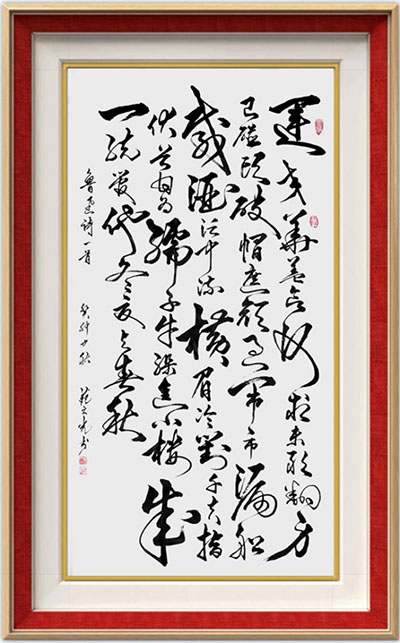 運交華蓋欲何求未敢翻身
已碰頭破帽遮顏過鬧市漏船
載酒泛中流橫眉冷對千夫指
伏首甘為孺子牛躲進小樓成
一統管他冬夏与春秋
魯迅詩一首 中秋